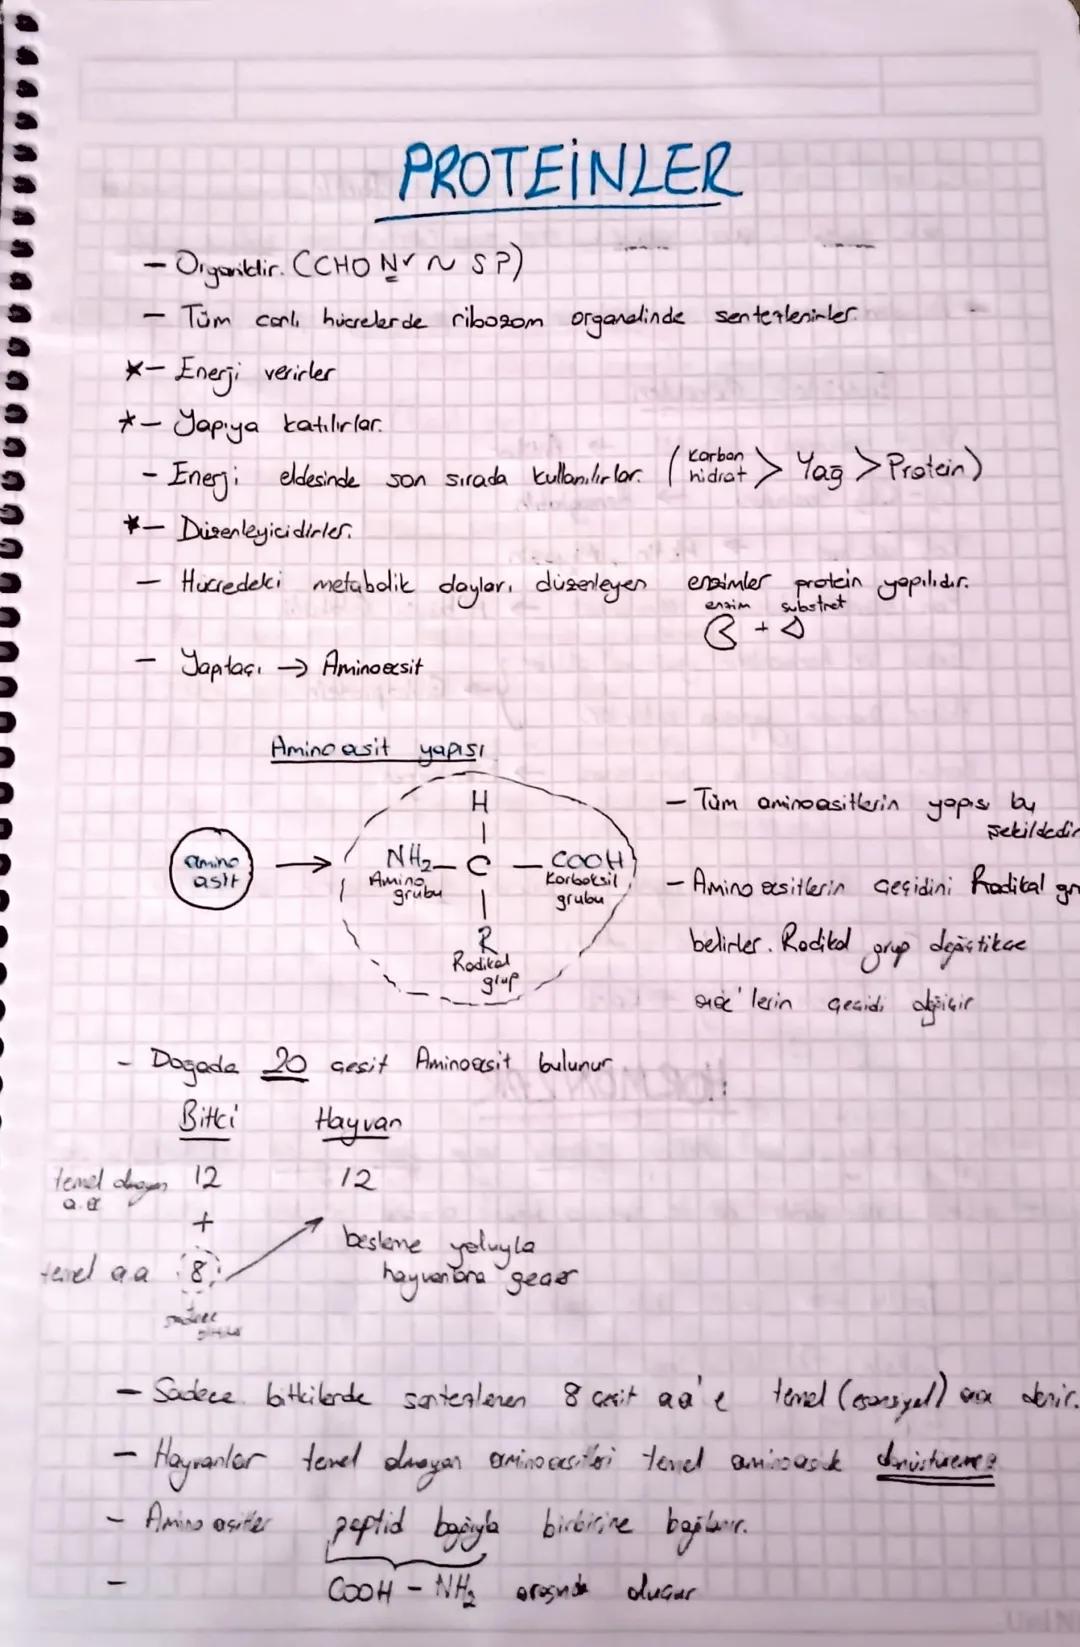 PROTEİNLER
- Organiktir. (CHO N ~ SP)
- Tüm canlı hücrelerde ribozom organelinde sentezlenirler.
*- Enerji verirler
*- Yapıya katılırlar.
- Enerji eldesinde son sırada kullanılırlar. (Karbon hidrat > Yağ > Protein)
*- Düzenleyicidirler.
- Hücredeki metabolik olayları düzenleyen enzimler protein yapılıdır.
enzim substret
+
- Yapıtaşı → Aminoasit
Aminoasit yapısı
H
amino asit → NH₂ - C - COOH
Amino grubu
Karboksil grubu
R
Radikal grup
- Tüm aminoasitlerin yapısı bu şekildedir
- Amino asitlerin çeşidini Radikal gr
belirler. Radikal grup değiştikçe
aa'lerin çeşidi değişir
- Doğada 20 çeşit Aminoasit bulunur
Bitki Hayvan
temel olmayan a.a 12 12
+
temel aa 8
sadece
besleme yoluyla
hayvanlara geçer
- Sadece bitkilerde sentezlenen 8 çeşit aa'e temel (esansiyel) aa denir.
- Hayvanlar temel olmayan aminoasitleri temel aminoaside dönüştüremez
- Amino asitler peptid bağıyla birbirine bağlanır.
- COOH - NH₂ arasında oluşur